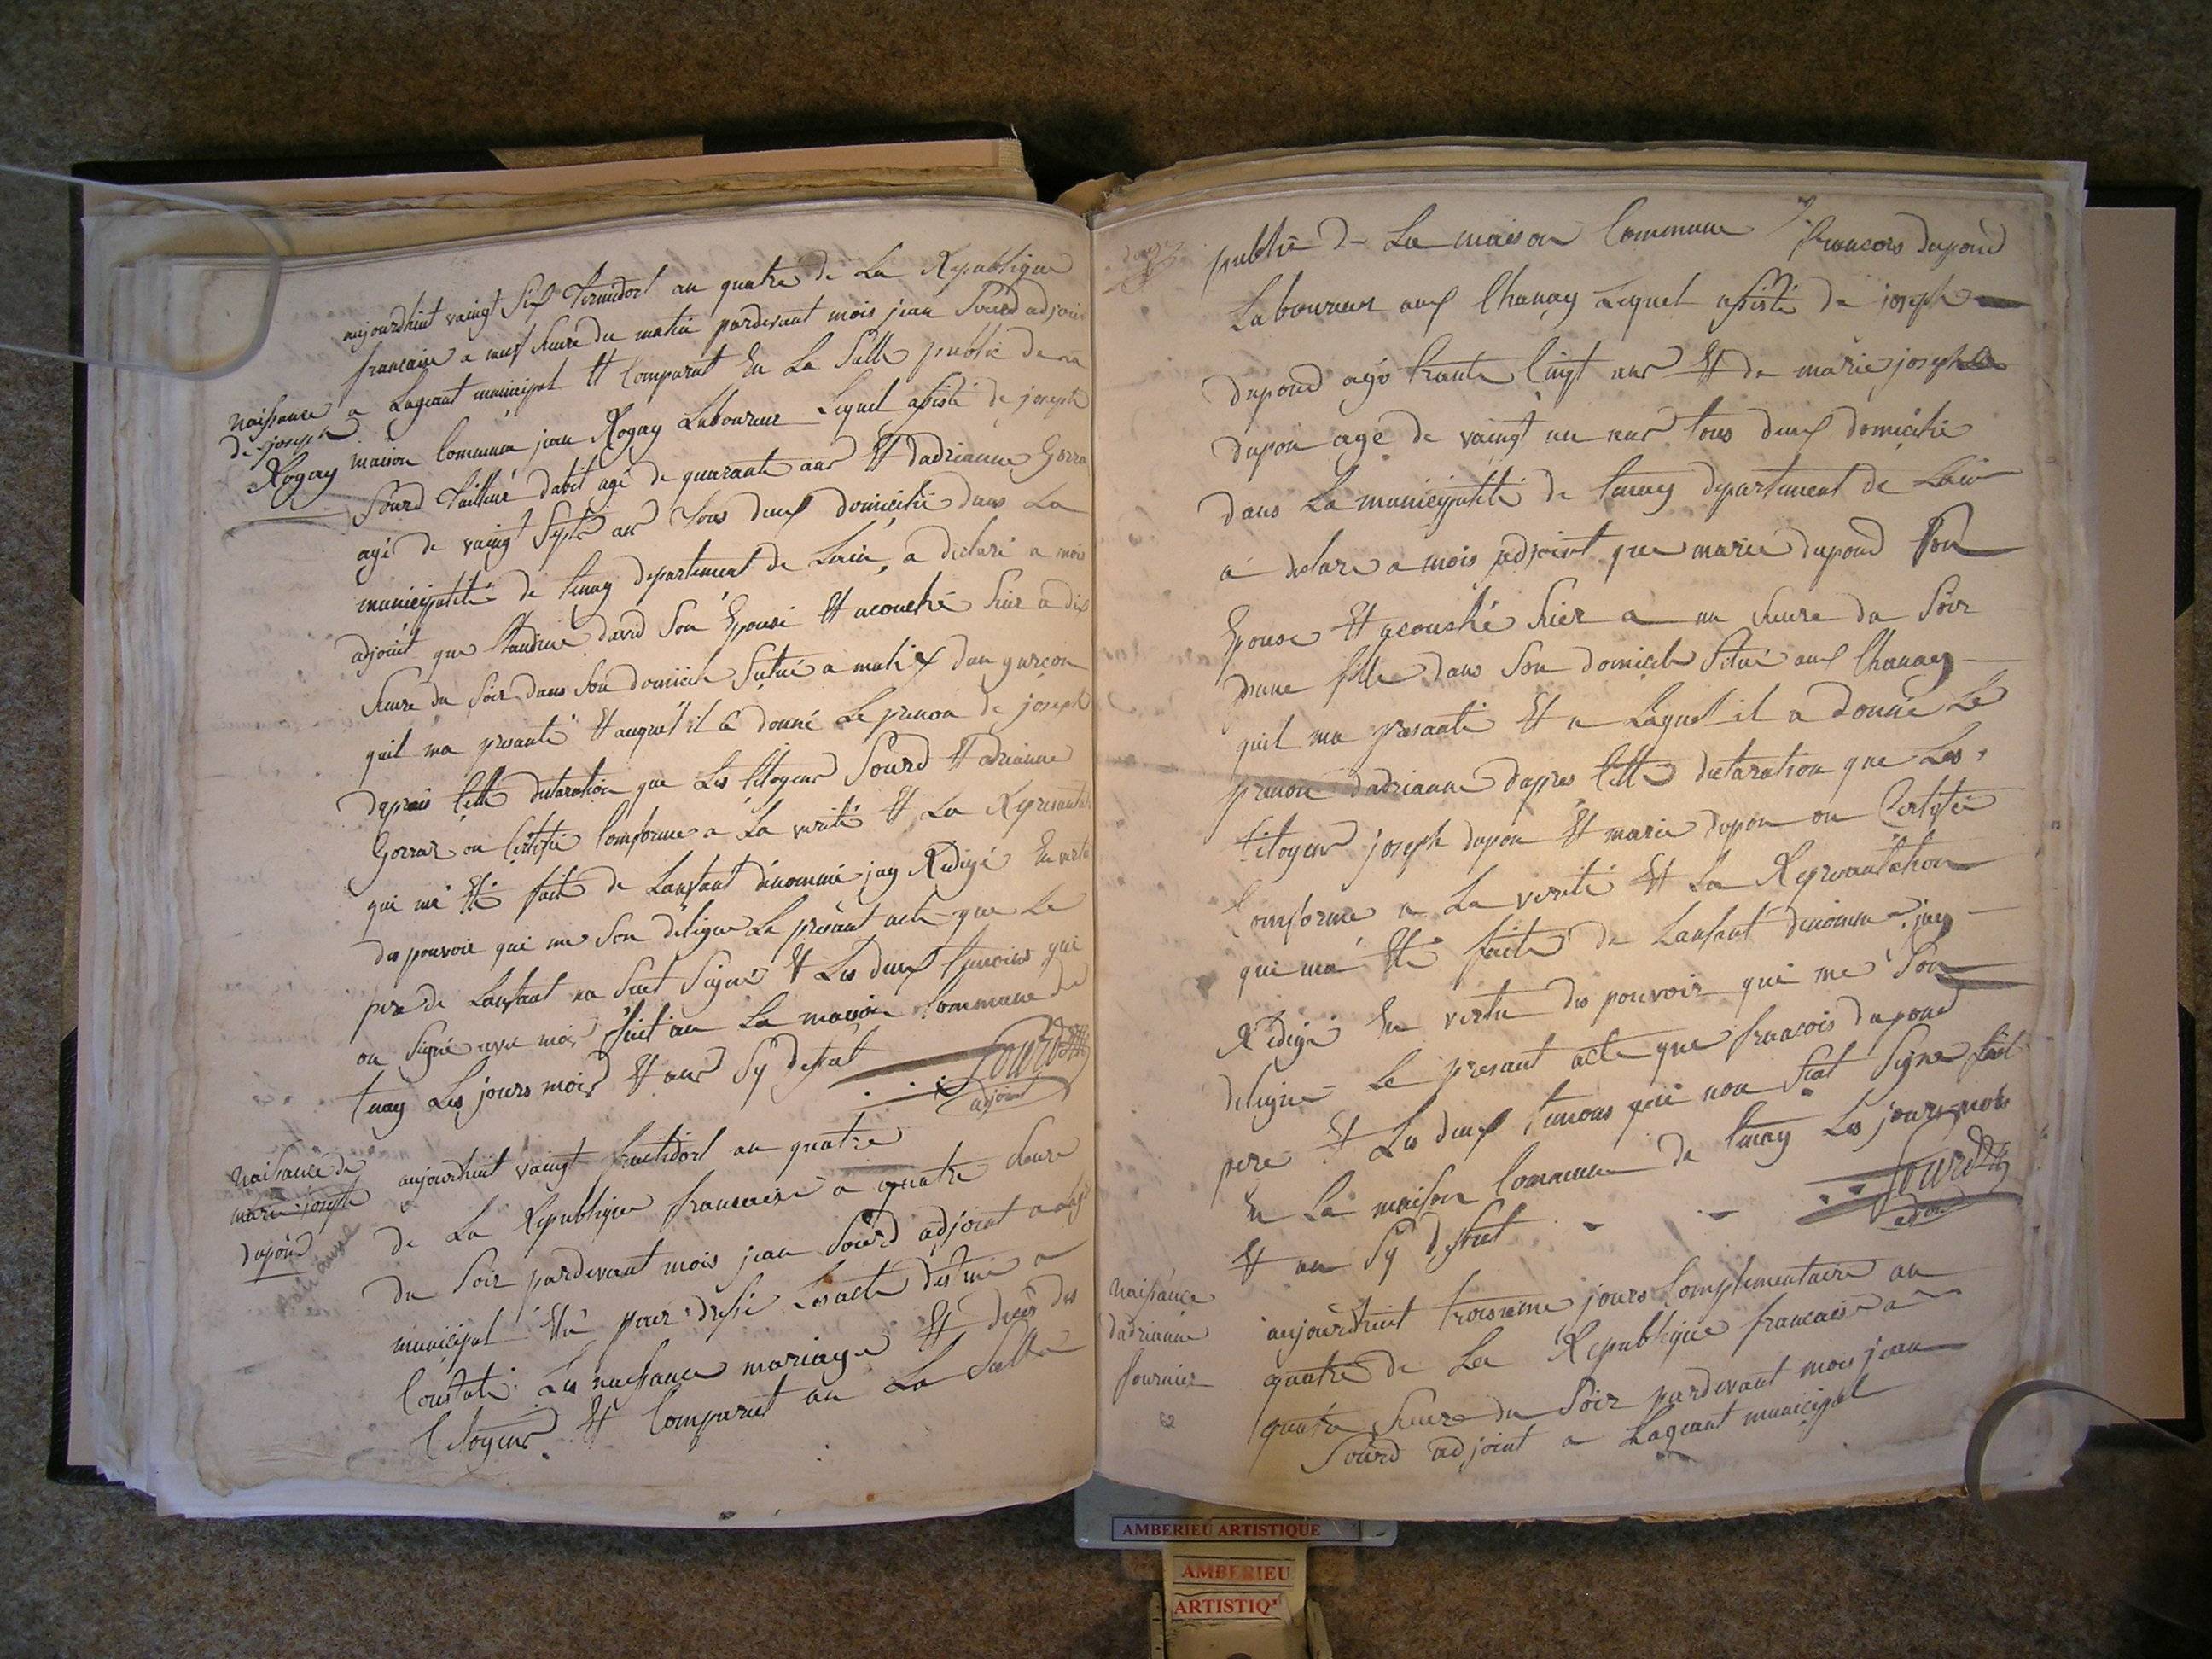 aujourdhuit vaingt six termidort an quatre de La Republique
francaise a neuf heure du matin pardevant mois jean Sourd adjoin
a Lageant municipal Et Comparut En La Salle public de la
maison Commune jean Rogay Laboureur Lequel asisté de joseph
Sourd tailleur dabit agé de quarante ans Et dadrianne Gorra
agé de vaingt Septs ans tous deux domicilié dans La
municipalité de tenay departement de Lain, a declaré a mois
adjoint que Claudine david Son Epouse Et acouché hier a dix
heure du Soir dans Son domicile Situé a malix dun garcon
quil ma presanté Et auquel il a donné Le prenon de joseph
daprais Cette declaration que Les Citoyens Sourd Et adrianne
Gorraz on Certifié Comforme a La verité Et La Represantat
qui ma Eté fait de Lanfant dénommé jay Rédigé En vertu
des pouvoir qui me Son déligue Le présant acte que Le
pere de Lanfant na Seut Signé Et Les deux temoins qui
on Signé avec moi, fait an La maison Commune de
tenay Les jours mois Et ans Sy desut
Sourd
adjoint
Naissance
de joseph
Rogay
Naisance de
marie joseph
dupond
aujourdhuit vaingt fructidort an quatre
de La Republique francaise a quatre heure
du Soir pardevant mois jean Sourd adjoint a Lag
municipal Elu pour dresse Les acte destiné a
Constaté Les naissance mariage Et deces des
Citoyens Et Comparut an La Salle
publié de La maison Commune francois dupond
Laboureur aux Chanay Lequel asisté de joseph
dupond agé trante Cinq ans Et de marie joseph
dupon age de vaingt un ans tous deux domicilié
dans La municipalité de tenay departement de Lain
a declare a mois adjoint que marie dupond Son
Epouse Et acouché hier a un heure du Soir
dune fille dans Son domicile Situé aux Chanay
quil ma presanté Et a Laquel il a donné Le
prenon dadrianne dapres Cette declaration que Les
Citoyens joseph dupon Et marie dupon on Certifié
Comforme a La verité Et La Represantation
qui ma Eté faite de Lanfant denommé jay
Rédigé En vertu des pouvoir qui me Son
deligué Le presant acte que francois dupond
pere Et Les deux temons qui non Seut Signe fait
En La maison Commune de tenay Les jours mois
Et an Sy desut
Sourd
adjoint
Naissance
dadrianne
fournier
62
aujourdhuit troisieme jours Complementaire an
quatre de La Republique francaise a
quatre heure du Soir pardevant mois jean
Sourd adjoint a Lageant municipal
AMBERIEU ARTISTIQUE
AMBERIEU
ARTISTIQ